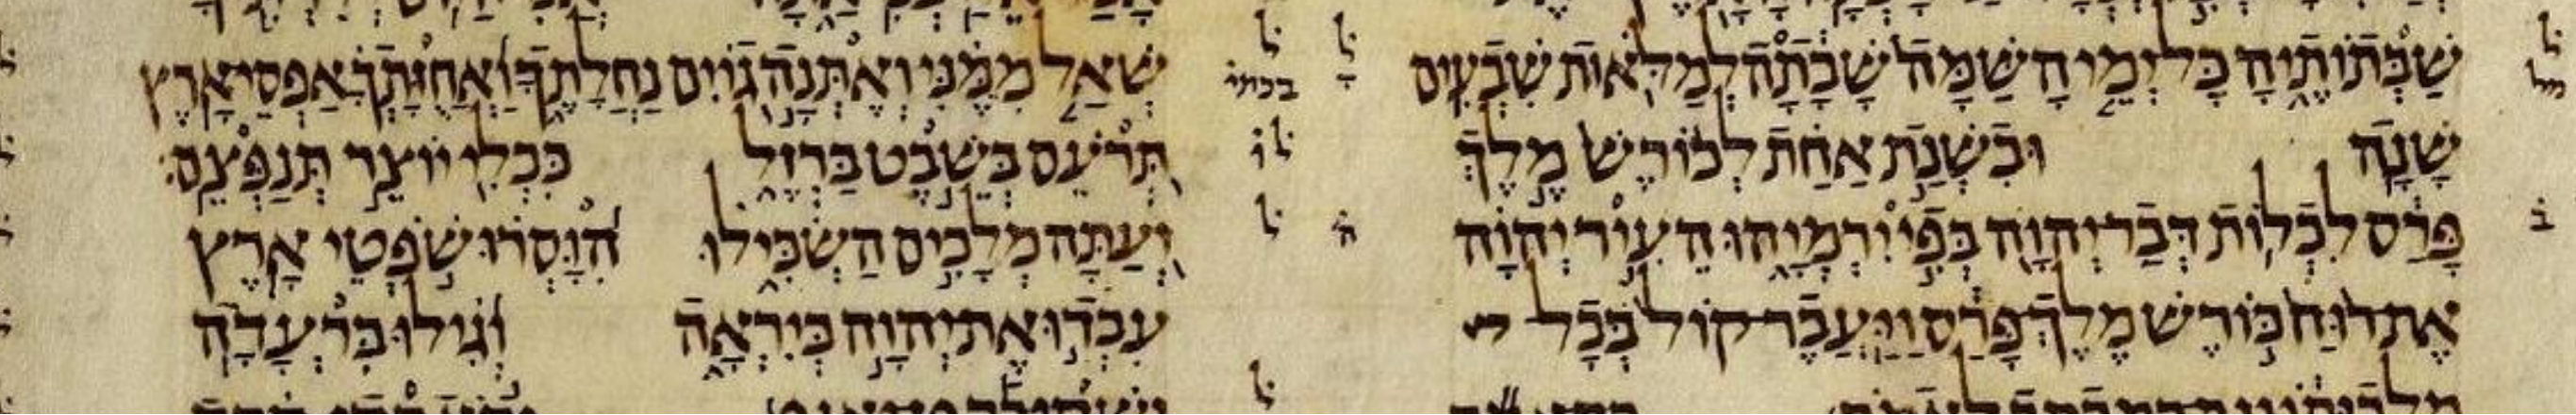 שַׁבְּתוֹתֶיהָ כָּל יְמֵי הָשַּׁמָּה שָׁבָתָה לְמַלֹּאות שִׁבְעִים
שָׁנָה וּבִשְׁנַת אַחַת לְכוֹרֶשׁ מֶלֶךְ
פָּרַס לִכְלוֹת דְּבַר יְהוָה בְּפִי יִרְמְיָהוּ הֵעִיר יְהוָה
אֶת רוּחַ כּוֹרֶשׁ מֶלֶךְ פָּרַס וַיַּעֲבֶר קוֹל בְּכָל
שְׁאַל מִמֶּנִּי וְאֶתְּנָה גוֹיִם נַחֲלָתֶךָ וַאֲחֻזָּתְךָ אַפְסֵי אָרֶץ
תְּרֹעֵם בְּשֵׁבֶט בַּרְזֶל כִּכְלִי יוֹצֵר תְּנַפְּצֵם׃
וְעַתָּה מְלָכִים הַשְׂכִּילוּ הִוָּסְרוּ שֹׁפְטֵי אָרֶץ
עִבְדוּ אֶת יְהוָה בְּיִרְאָה וְגִילוּ בִּרְעָדָה